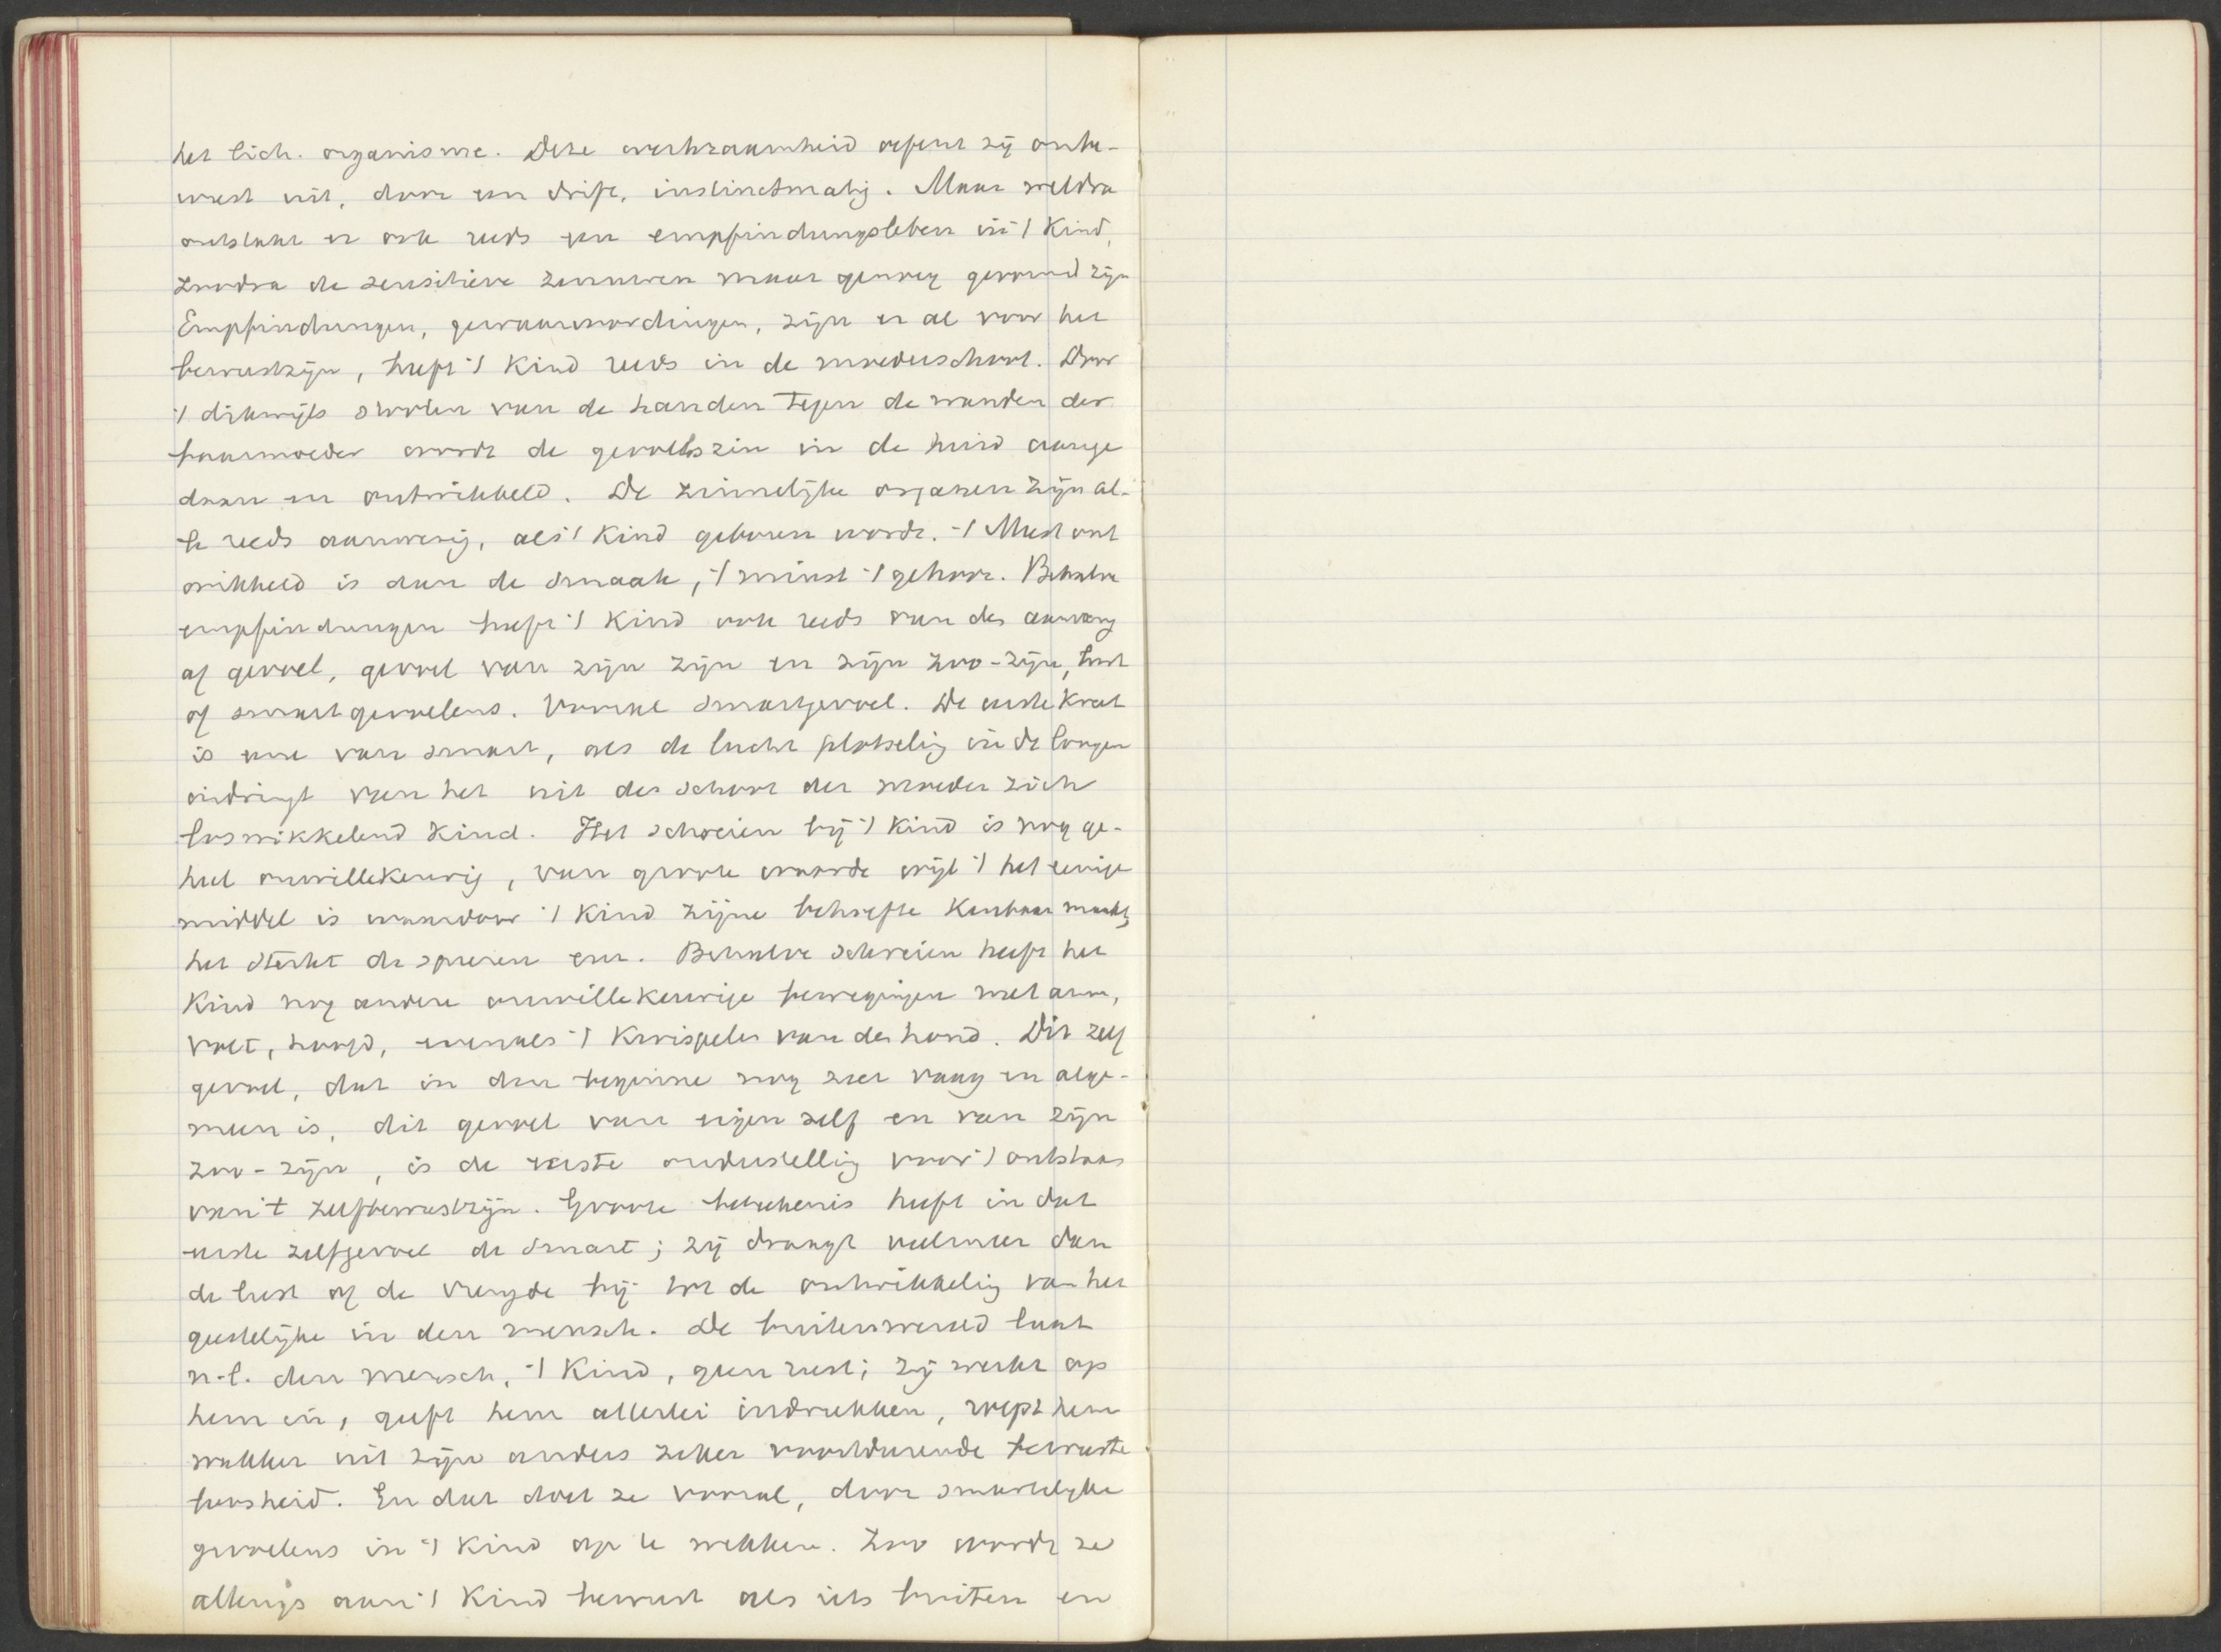 het lich. organisme. Deze werkzaamheid oefent zij onbe-
wust uit, door een drift, instinctmatig. Maar weldra
ontstaat er ook reeds een empfindungsleben in 't Kind,
zoodra de sensitieve zenuwen maar genoeg gevormd zijn
Empfindungen, gewaarwordingen, zijn er al voor het
bewustzijn, heeft 't Kind reeds in de moederschoot. Door
't dikwijls stooten van de handen tegen de wanden der
baarmoeder wordt de gevoelszin in de huid aange
daan en ontwikkeld. De zinnelijke organen zijn al-
le reeds aanwezig, als 't Kind geboren wordt. 't Meest ont
wikkeld is dan de smaak, 't minst 't gehoor. Behalve
empfindungen heeft 't Kind ook reeds van den aanvang
af gevoel, gevoel van zijn zijn en zijn zoo-zijn, lust
of smartgevoelens. Vooral smartgevoel. De eerste Kreet
is eene van smart, als de lucht plotselig in de longen
indringt van het uit den schoot der moeder zich
loswikkelend Kind. Het schreien bij 't Kind is nog ge-
heel onwillekeurig, van groote waarde wijl 't het eenige
middel is waardoor 't Kind zijne behoefte Kenbaar maakt,
het sterkt de spieren enz. Behalve schreien heeft het
Kind nog andere onwillekeurige bewegingen met arm,
voet, hoofd, evenals 't Kwispelen van den hond. Dit zelf
gevoel, dat in den beginne nog zeer vaag en alge-
meen is, dit gevoel van eigen zelf en van zijn
zoo-zijn, is de vaste onderstellig voor 't ontstaan
van 't zelfbewustzijn. Groote beteekenis heeft in dat
eerste zelfgevoel de smart; zij draagt veelmeer dan
de lust of de vreugde bij tot de ontwikkelig van het
geestelijke in den mensch. De buitenwereld laat
n.l. den mensch, 't Kind, geen rust; zij werkt op
hem in, geeft hem allerlei indrukken, roept hem
wakker uit zijn anders zeker voortdurende bewuste
loosheid. En dat doet ze vooral, door smartelijke
gevoelens in 't Kind op te wekken. Zoo wordt ze
allengs aan 't Kind bewust als iets buiten en